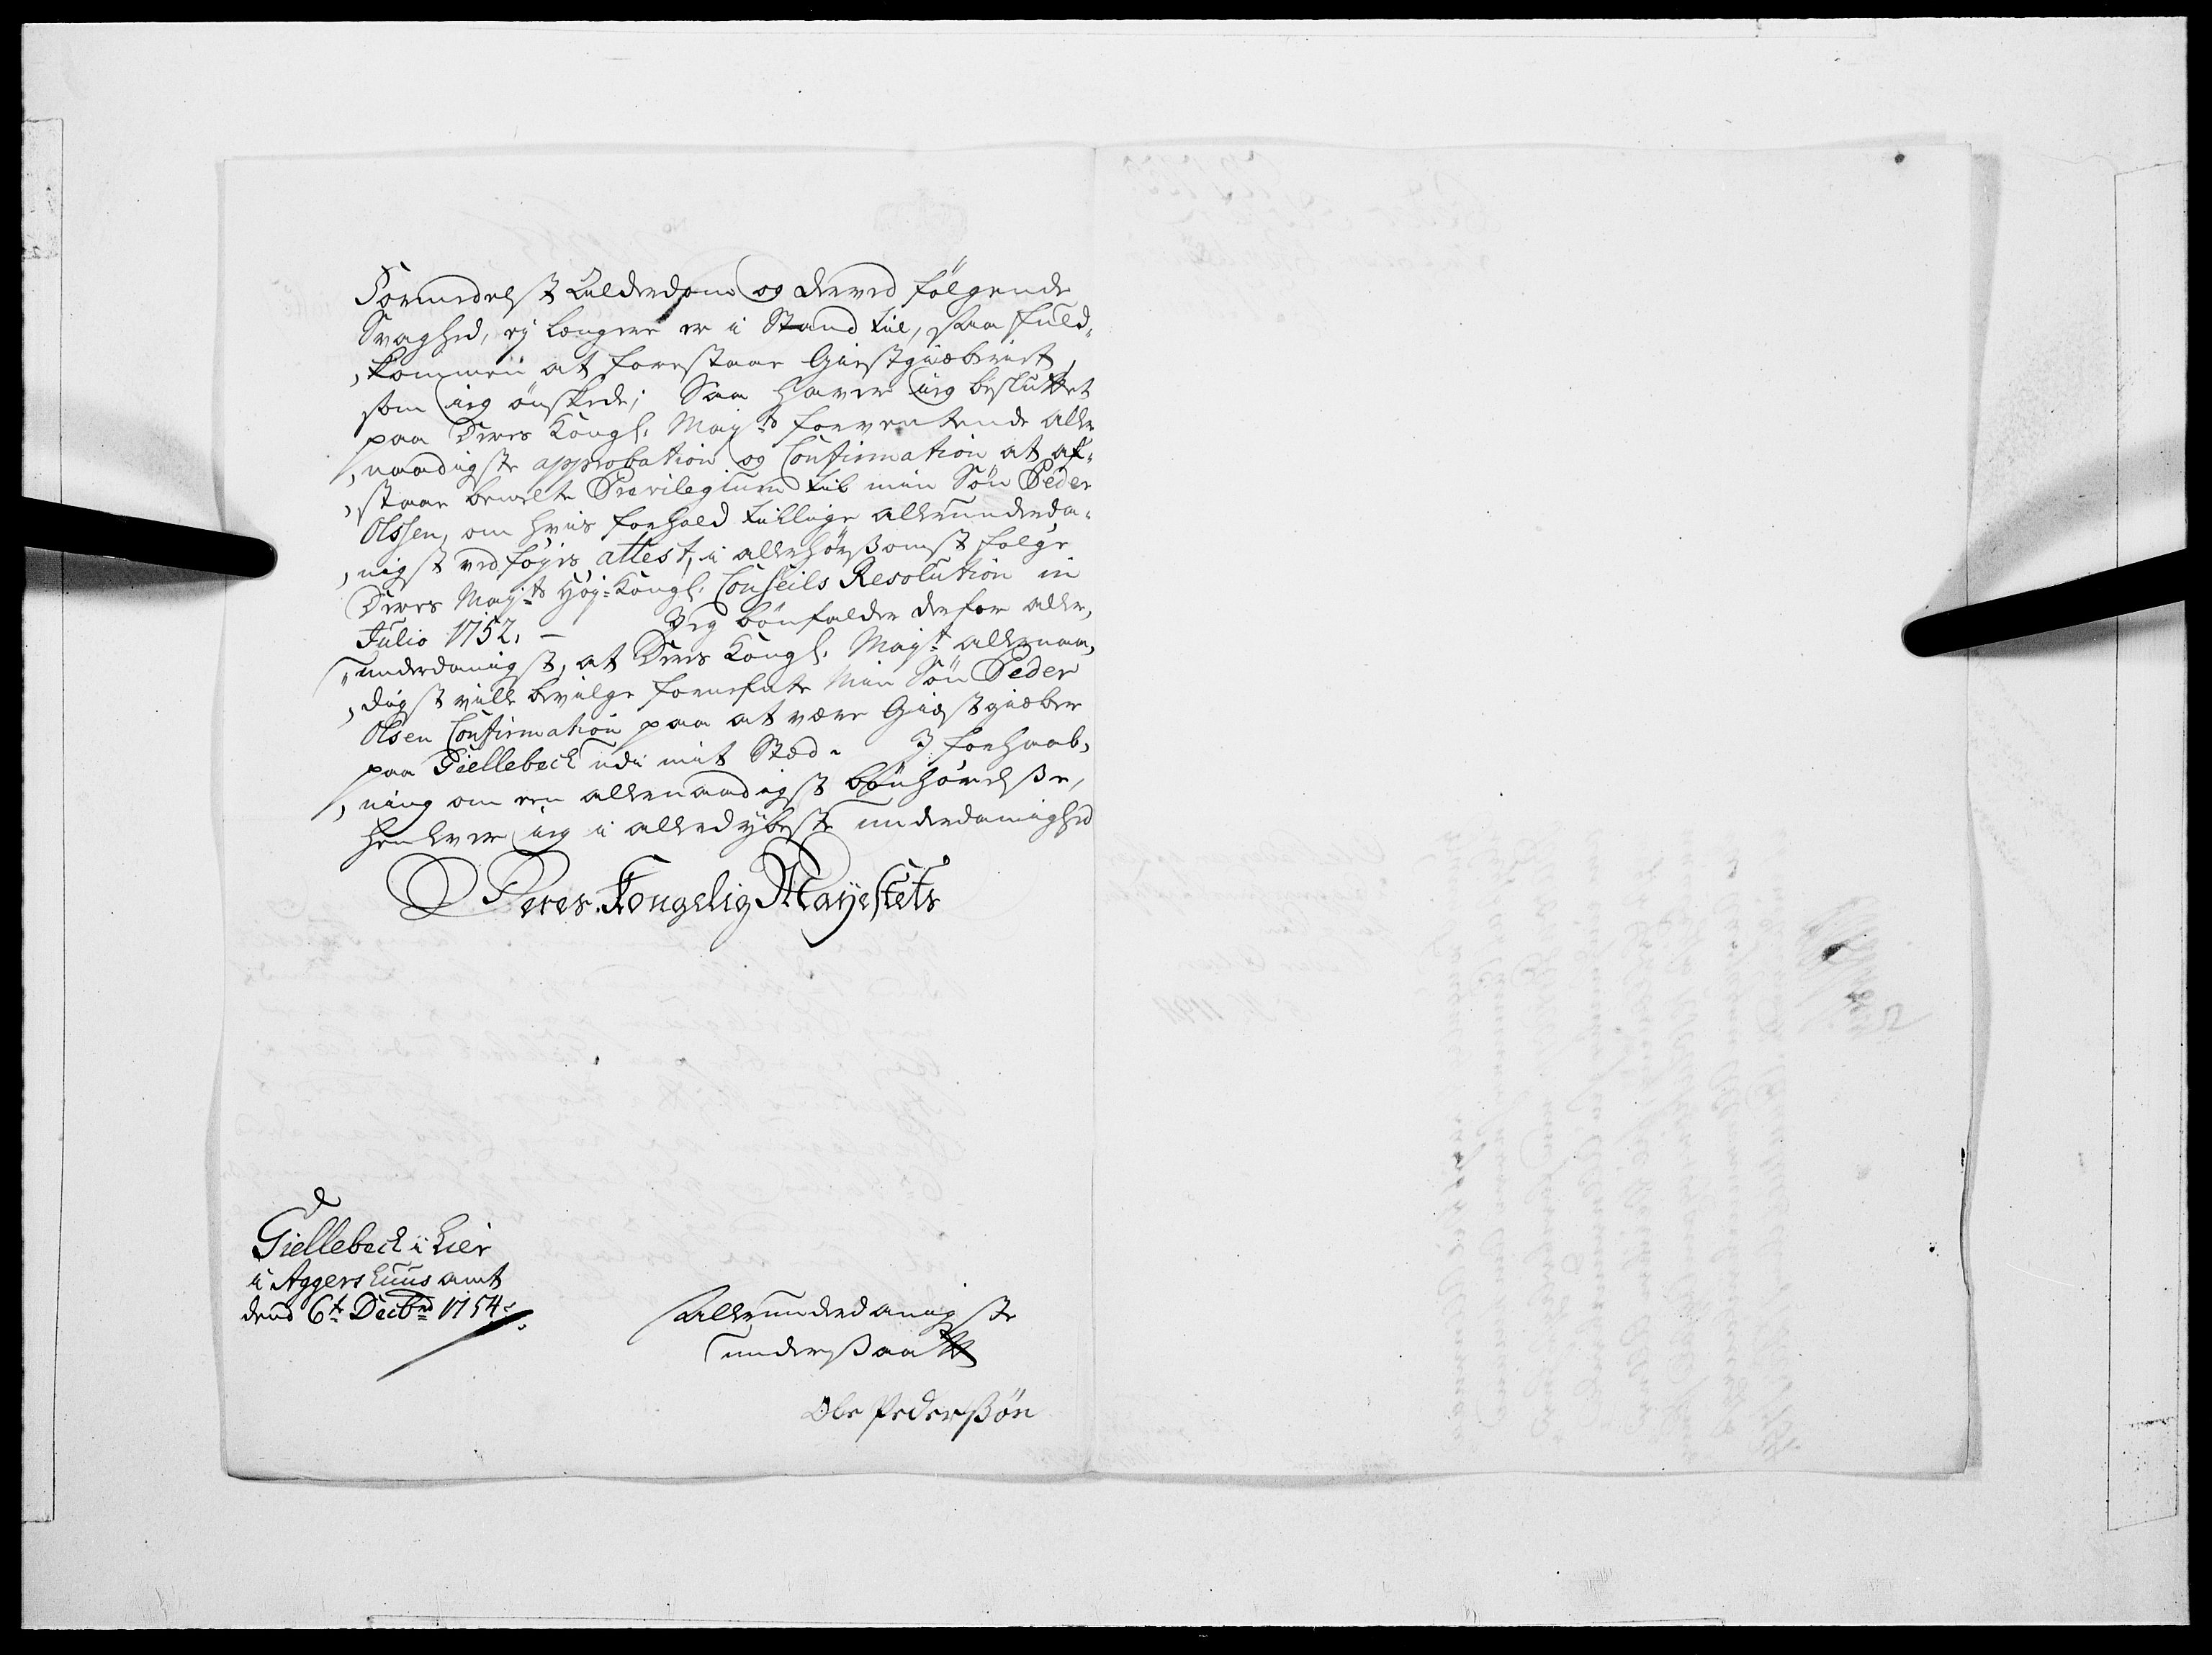 Formedelst Alderdom og derved følgende
Svaghed, ej længere er i Stand til, saa fuld„
„kommen at forestaae Giestgiæberiet,
som ieg ønskede; Saa haver ieg besluttet
paa Deres Kongl. Mayts forventende aller
„naadigste approbation og Confirmation at af„
„staae bemelte Previlegium til min Søn Peder
Olssen, om hvis forhold tillige allerundeda„
„nigst vedføyes attest, i allerhørsomst følge
Deres Mayts Høy=Kongl. Conseils Resolution in
Julio 1752. — Jeg bønfalder derfor aller„
„underdanigst, at Deres Kongl. Mayt allernaa„
„digst ville bevilge forrefate Min Søn Peder
Olsen Confirmation paa at være Giæstgiæber
paa Giellebeck udi mit Stæd. I forhaab„
„ning om een allernaadigst bønhørelsse,
henlever ieg i allerdybeste underdanighed
Deres Kongelig Mayestets
Giellebeck i Lier
i Aggershuus amt
dend 6t Decbr 1754.
Allerunderdanigste
undersaatt
Ole Pederssøn